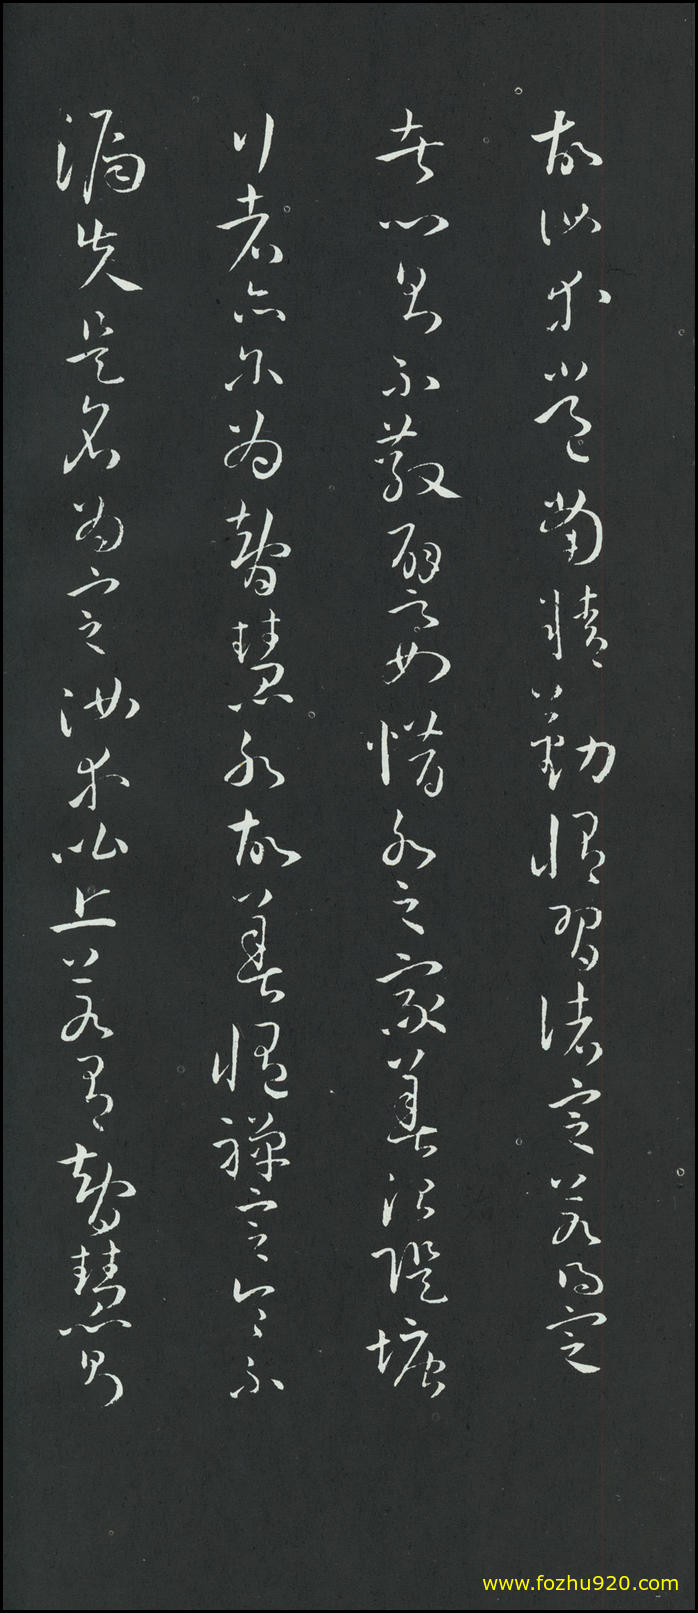 故汝等常當精勤修習諸定若得定
者心則不散譬如惜水之家善治隄塘
行者亦尔為智慧水故善修禪定令不
漏失是名為定汝等比丘若有智慧則
www.fozhu920.com